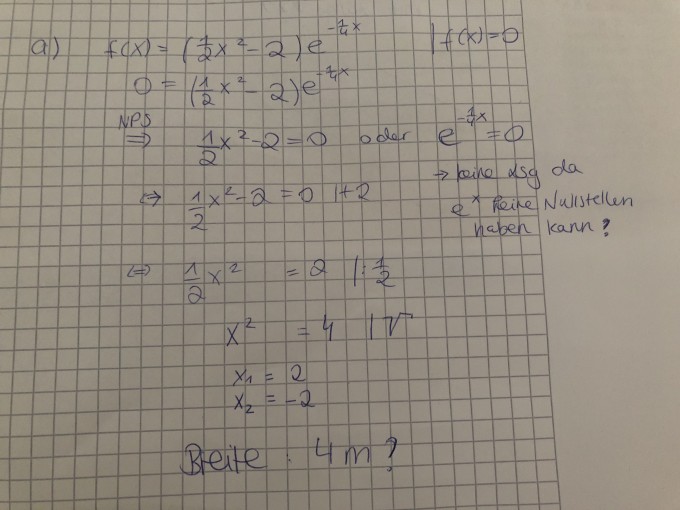 a) f(x) = (1/2 x² - 2) e^(-1/4 x) | f(x) = 0
0 = (1/2 x² - 2) e^(-1/4 x)
NPS
⇒ 1/2 x² - 2 = 0 oder e^(-1/4 x) = 0
→ keine Lsg da
e^x keine Nullstellen
haben kann?
⇔ 1/2 x² - 2 = 0 | + 2
⇔ 1/2 x² = 2 | : 1/2
x² = 4 | √
x₁ = 2
x₂ = -2
Breite : 4 m ?